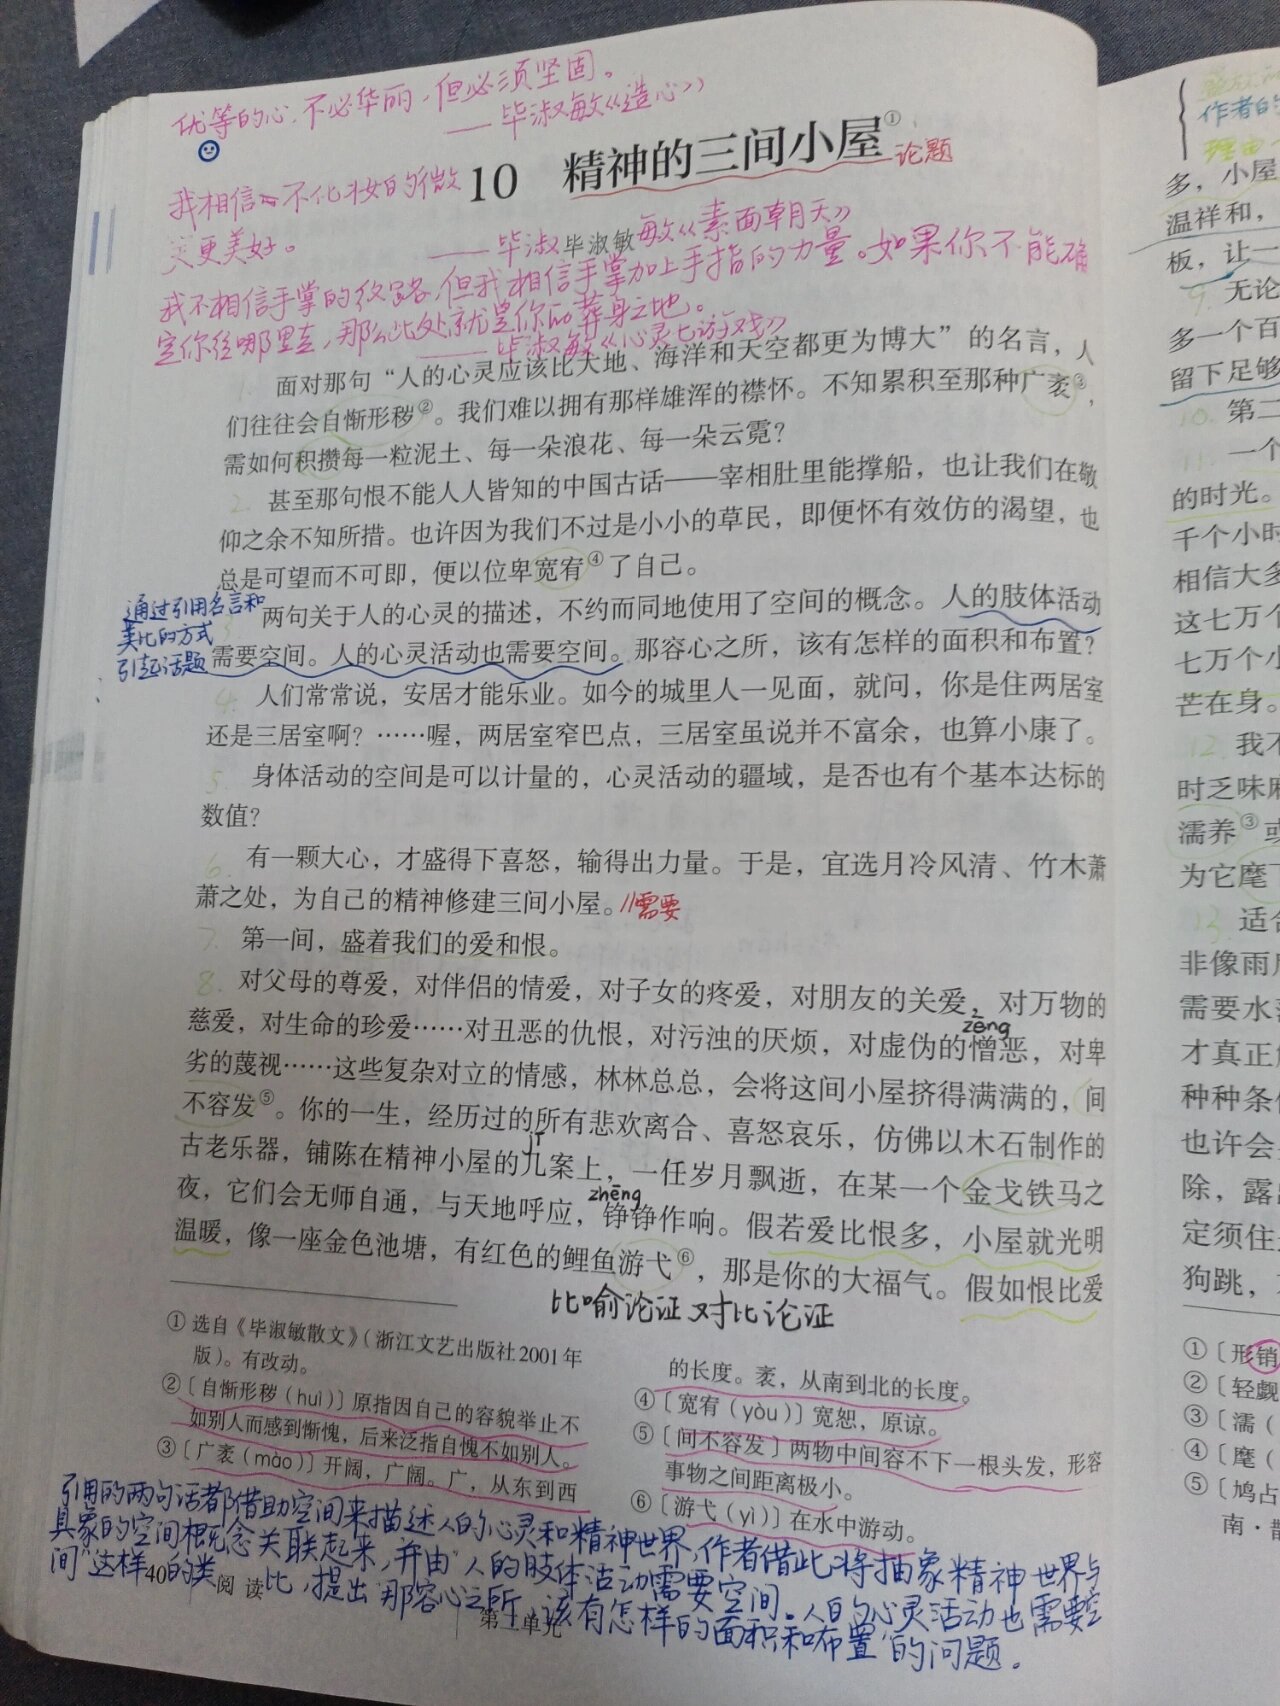 优等的心,不必华丽,但必须坚固。
——毕淑敏《造心》
10 精神的三间小屋①
论题
我相信 不化妆的微
笑更美好。
——毕淑敏《素面朝天》
毕淑敏
我不相信手掌的纹路,但我相信手掌加上手指的力量。如果你不能确
定你经哪里去,那么此处就是你的葬身之地。
——毕淑敏《心灵七游戏》
1. 面对那句“人的心灵应该比大地、海洋和天空都更为博大”的名言,人
们往往会自惭形秽②。我们难以拥有那样雄浑的襟怀。不知累积至那种广袤③,
需如何积攒每一粒泥土、每一朵浪花、每一朵云霓?
2. 甚至那句恨不能人人皆知的中国古话——宰相肚里能撑船,也让我们在敬
仰之余不知所措。也许因为我们不过是小小的草民,即便怀有效仿的渴望,也
总是可望而不可即,便以位卑宽宥④了自己。
通过引用名言和
类比的方式
引起话题
3. 两句关于人的心灵的描述,不约而同地使用了空间的概念。人的肢体活动
需要空间。人的心灵活动也需要空间。那容心之所,该有怎样的面积和布置?
4. 人们常常说,安居才能乐业。如今的城里人一见面,就问,你是住两居室
还是三居室啊?……喔,两居室窄巴点,三居室虽说并不富余,也算小康了。
5. 身体活动的空间是可以计量的,心灵活动的疆域,是否也有个基本达标的
数值?
6. 有一颗大心,才盛得下喜怒,输得出力量。于是,宜选月冷风清、竹木萧
萧之处,为自己的精神修建三间小屋。//需要
7. 第一间,盛着我们的爱和恨。
8. 对父母的尊爱,对伴侣的情爱,对子女的疼爱,对朋友的关爱,对万物的
慈爱,对生命的珍爱……对丑恶的仇恨,对污浊的厌烦,对虚伪的憎恶,对卑
zēng
劣的蔑视……这些复杂对立的情感,林林总总,会将这间小屋挤得满满的,间
不容发⑤。你的一生,经历过的所有悲欢离合、喜怒哀乐,仿佛以木石制作的
古老乐器,铺陈在精神小屋的几案上,一任岁月飘逝,在某一个金戈铁马之
zhēng
夜,它们会无师自通,与天地呼应,铮铮作响。假若爱比恨多,小屋就光明
温暖,像一座金色池塘,有红色的鲤鱼游弋⑥,那是你的大福气。假如恨比爱
比喻论证 对比论证
① 选自《毕淑敏散文》(浙江文艺出版社2001年
版)。有改动。
②〔自惭形秽(huì)〕原指因自己的容貌举止不
如别人而感到惭愧,后来泛指自愧不如别人。
③〔广袤(mào)〕开阔,广阔。广,从东到西
的长度。袤,从南到北的长度。
④〔宽宥(yòu)〕宽恕,原谅。
⑤〔间不容发〕两物中间容不下一根头发,形容
事物之间距离极小。
⑥〔游弋(yì)〕在水中游动。
引用的两句话都借助空间来描述人的心灵和精神世界,作者借此将抽象精神世界与
具象的空间概念关联起来,并由“人的肢体活动需要空间。人的心灵活动也需要空
间”这样的类比,提出“那容心之所,该有怎样的面积和布置”的问题。
40 阅读
第三单元
作者的
理由
多,小屋
温祥和,
板,让一
9. 无论
多一个百
留下足够
10. 第二
11. 一个
的时光。
千个小时
相信大多
这七万个
七万个小
芒在身。
12. 我不
时乏味麻
濡养③或
为它麾下
13. 适合
非像雨后
需要水
才真正
种种条件
也许会
除,露
定须住
狗跳,
①〔形销
②〔轻觑
③〔濡(
④〔麾(
⑤〔鸠占
南·